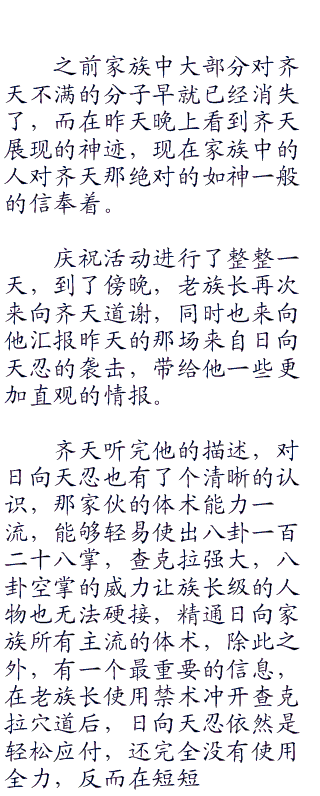 之前家族中大部分对齐
天不满的分子早就已经消失
了，而在昨天晚上看到齐天
展现的神迹，现在家族中的
人对齐天那绝对的如神一般
的信奉着。
庆祝活动进行了整整一
天，到了傍晚，老族长再次
来向齐天道谢，同时也来向
他汇报昨天的那场来自日向
天忍的袭击，带给他一些更
加直观的情报。
齐天听完他的描述，对
日向天忍也有了个清晰的认
识，那家伙的体术能力一
流，能够轻易使出八卦一百
二十八掌，查克拉强大，八
卦空掌的威力让族长级的人
物也无法硬接，精通日向家
族所有主流的体术，除此之
外，有一个最重要的信息，
在老族长使用禁术冲开查克
拉穴道后，日向天忍依然是
轻松应付，还完全没有使用
全力，反而在短短